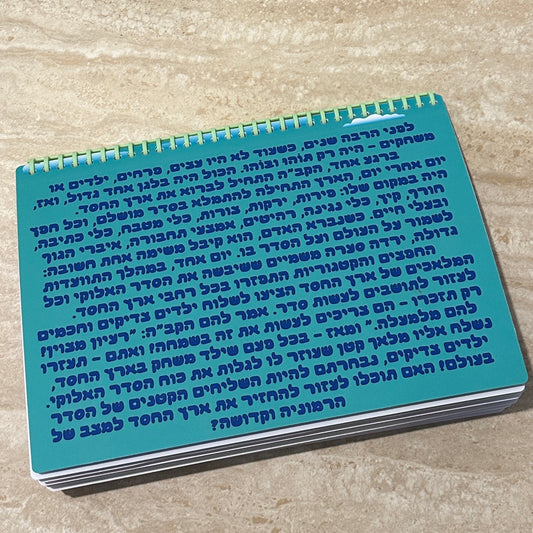 לפני הרבה שנים, כשעוד לא היו עצים, פרחים, ילדים או
משחקים - היה רק תוהו ובוהו. הכול היה בלגן אחד גדול, ואז,
ברגע אחד, הקב"ה התחיל לברוא את ארץ החסד.
יום אחרי יום, הארץ התחילה להתמלא בסדר מושלם, וכל חפץ
היה במקום שלו: פירות, ירקות, צורות, כלי מטבח, כלי כתיבה,
חורף, קיץ, כלי נגינה, רהיטים, אמצעי תחבורה, איברי הגוף
ובעלי חיים. כשנברא האדם, הוא קיבל משימה אחת חשובה:
לשמור על העולם ועל הסדר בו. יום אחד, במהלך התוועדות
גדולה, ירדה סערה משמיים ששיבשה את הסדר האלוקי וכל
החפצים והקטגוריות התפזרו בכל רחבי ארץ החסד.
המלאכים של ארץ החסד הציעו לשלוח ילדים צדיקים וחכמים
לעזור לתושבים לעשות סדר. אמר להם הקב"ה: "רעיון מצוין!
רק תזכרו - הם צריכים לעשות את זה בשמחה! ואתם - תעזרו
להם מלמעלה." ומאז - בכל פעם שילד משחק בארץ החסד,
נשלח אליו מלאך קטן שעוזר לו לגלות את כוח הסדר האלוקי.
ילדים צדיקים, נבחרתם להיות השליחים הקטנים של הסדר
בעולם! האם תוכלו לעזור להחזיר את ארץ החסד למצב של
הרמוניה וקדושה?